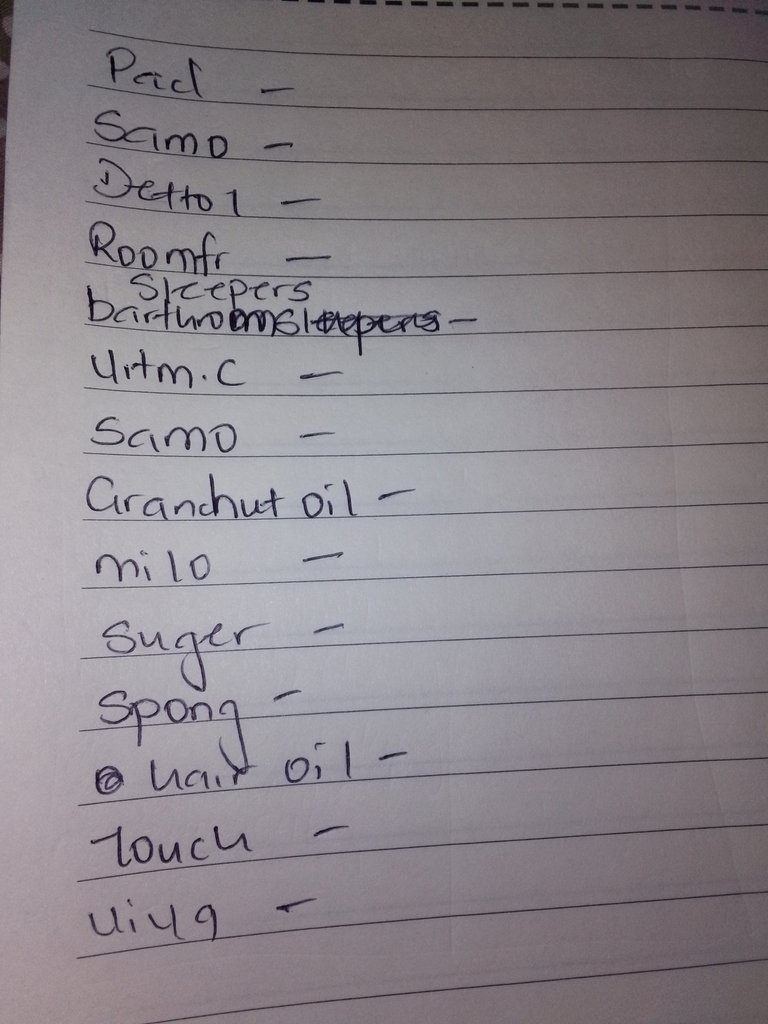 Pad -
Samo -
Dettol -
Roomfr -
Sleepers
barthroom -
Vitm.C -
Samo -
Granchut oil -
milo -
Suger -
Spong -
hair oil -
Touch -